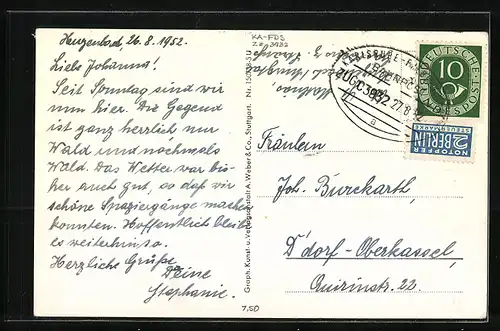 Herzenbad, 26.8.1952.
Liebs Johanna!
Seit Sonntag sind wir
nun hier. Die Gegend
ist ganz herrlich nur
Wald und nochmals
Wald. Das Wetter war bis-
her auch gut, so daß wir
schöne Spaziergänge machen
konnten. Hoffentlich bleibt
es weiterhin so.
Herzliche Grüße
Deine
Stephanie.
KA-FDS
ZUG 3932
Graph. Kunst- u. Verlagsanstalt A. Weber & Co., Stuttgart.
7,50
BAHNPOST
ZUG 3932
27.8.52
a
DEUTSCHE BUNDESPOST
10
NOTOPFER
2 BERLIN
STEUERMARKE
Fräulein
Joh. Burckarth,
D'dorf-Oberkassel,
Quirinstr. 22.